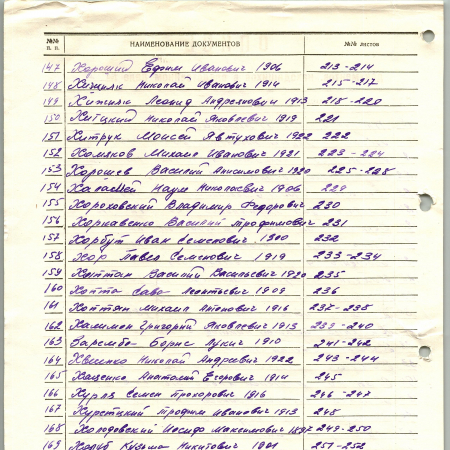 №№ п. п. НАИМЕНОВАНИЕ ДОКУМЕНТОВ №№ листов
147 Хороший Ефим Иванович 1906 213-214
148 Хижняк Николай Иванович 1914 215-217
149 Хижняк Леонид Андреянович 1913 218-220
150 Николай Яковлевич 1919 221
151 Хитрук Моисей Явтухович 1922 222
152 Хомяков Михаил Иванович 1921 223-224
153 Хорошев Василий Анисимович 1920 225-228
154 Наум Николаевич 1906 229
155 Хороховский Владимир Федорович 230
156 Василий Трофимович 231
157 Хорбут Иван Семенович 1900 232
158 Хор Павел Семенович 1919 233-234
159 Хоттин Василий Васильевич 1920 235
160 Хотта Сава Леонтьевич 1909 236
161 Хоттян Михаил Антонович 1916 237-238
162 Халимон Григорий Яковлевич 1913 239-240
163 Борис Лукич 1910 241-242
164 Николай Андреевич 1922 243-244
165 Хащенко Анатолий Егорович 1914 245
166 Хурля Семен Прохорович 1916 246-247
167 Трофим Иванович 1913 248
168 Холодовский Иосиф Максимович 1897 249-250
169 Холиб Кузьма Никитович 1901 251-252